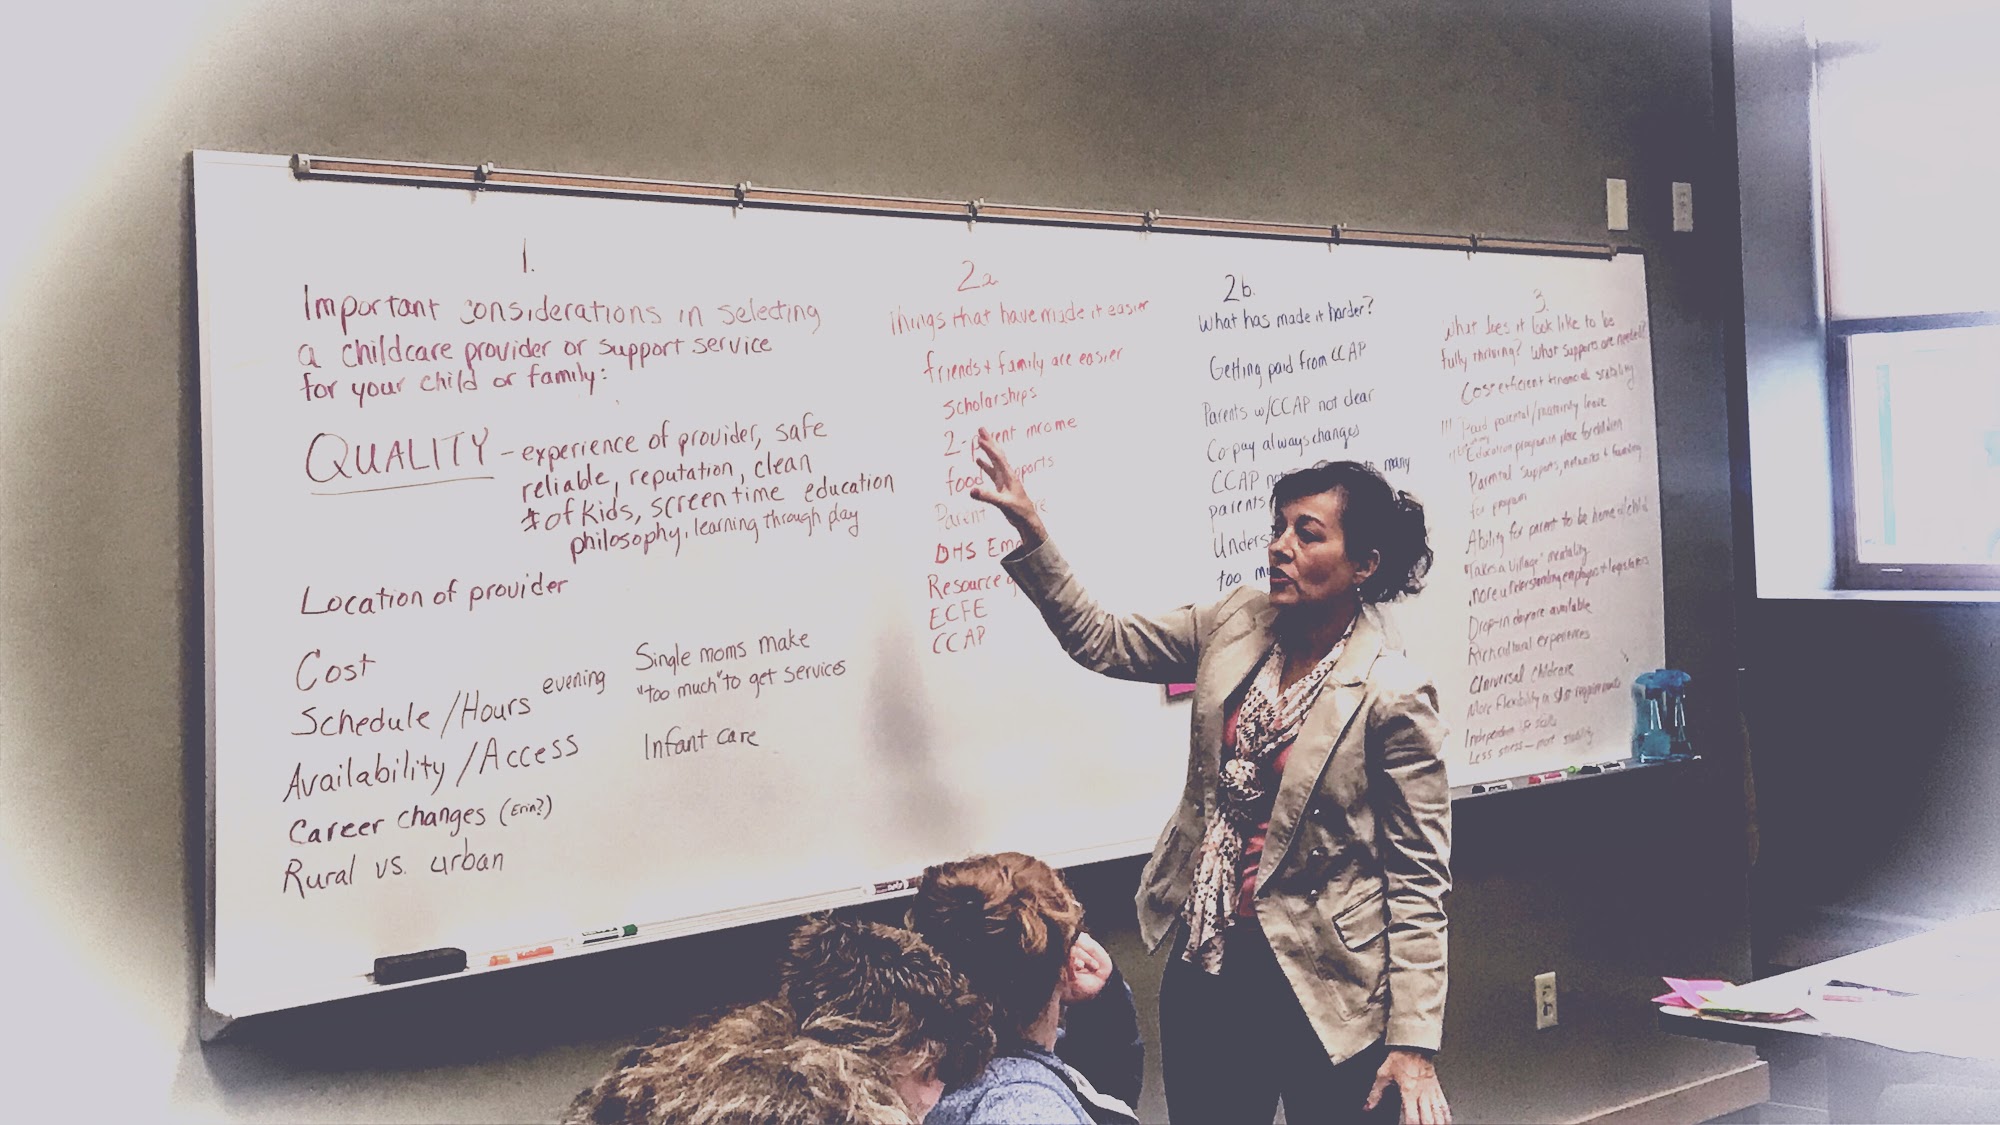 1.
Important considerations in selecting
a childcare provider or support service
for your child or family:
QUALITY - experience of provider, safe
reliable, reputation, clean
# of kids, screen time education
philosophy, learning through play
Location of provider
Cost
Schedule/Hours evening
Availability/Access
Career changes (Erin?)
Rural vs. urban
Single moms make
"too much" to get services
Infant care
2a.
Things that have made it easier
friends + family are easier
Scholarships
2-parent income
food supports
Parent
DHS
Resource
ECFE
CCAP
2b.
What has made it harder?
Getting paid from CCAP
Parents w/CCAP not clear
Co-pay always changes
CCAP many
parents
too
3.
What does it look like to be
fully thriving? What supports are needed?
Cost efficient + financial stability
Paid parental/maternity leave
Education program in place for children
Parental supports, networks + funding
for program
Ability for parent to be home w/child
"Takes a Village" mentality
more understanding employers + legislators
Drop-in daycare available
Rich cultural experiences
Universal childcare
More flexibility in requirements
Independent life skills
Less stress - more stability